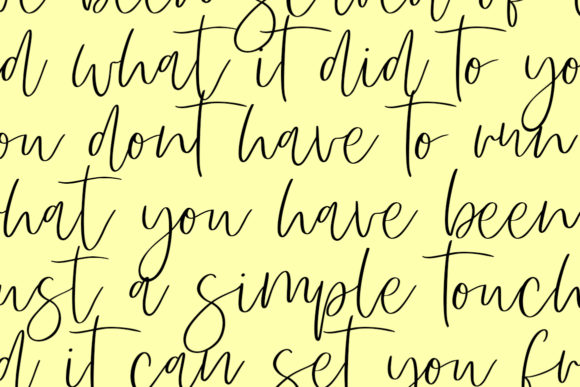 ve been of
d what it did to yo
ou dont have to run
hat you have been
ust a simple touch
d it can set you fr